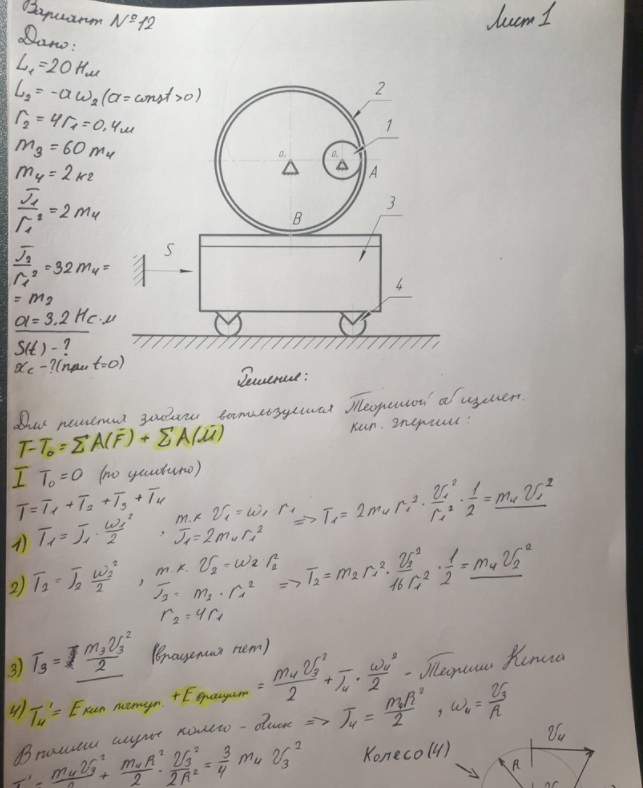 Вариант №12
Лист 1
Дано:
L₁ = 20 Нм
L₂ = -aω₂ (a = const > 0)
r₂ = 4r₁ = 0,4 м
m₃ = 60 m₄
m₄ = 2 кг
J₁/r₁² = 2 m₄
J₂/r₁² = 32 m₄ =
= m₂
a = 3.2 Нс·м
S(t) - ?
xc - ? (при t=0)
2
1
O₁
A
B
3
S
4
Решение:
Для решения задачи воспользуемся Теоремой об измен.
кин. энергии:
T - T₀ = ΣA(F̄) + ΣA(M̄)
I T₀ = 0 (по условию)
T = T₁ + T₂ + T₃ + T₄
1) T₁ = J₁ · ω₁²/2 , т.к. V₁ = ω₁ · r₁ => T₁ = 2m₄ r₁² · V₁²/r₁² · 1/2 = m₄ V₁²
J₁ = 2m₄ r₁²
2) T₂ = J₂ ω₂²/2 , т.к. V₂ = ω₂ r₂ => T₂ = m₂ r₁² · V₂²/16r₁² · 1/2 = m₄ V₂²
J₂ = m₂ · r₁²
r₂ = 4r₁
3) T₃ = m₃V₃²/2 (вращения нет)
4) T₄' = E кин. поступ. + E вращат = m₄V₃²/2 + J₄ · ω₄²/2 - Теорема Кёнига
В нашем случае колесо - диск => J₄ = m₄R²/2 , ω₄ = V₃/R
T₄' = m₄V₃²/2 + m₄R²/2 · V₃²/2R² = 3/4 m₄ V₃²
Колесо (4)
R
V₄